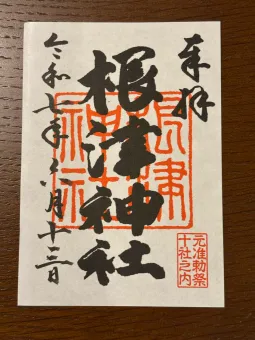 奉拝
根津神社
令和七年八月十三日
元准勅祭
十社之内
根津神社